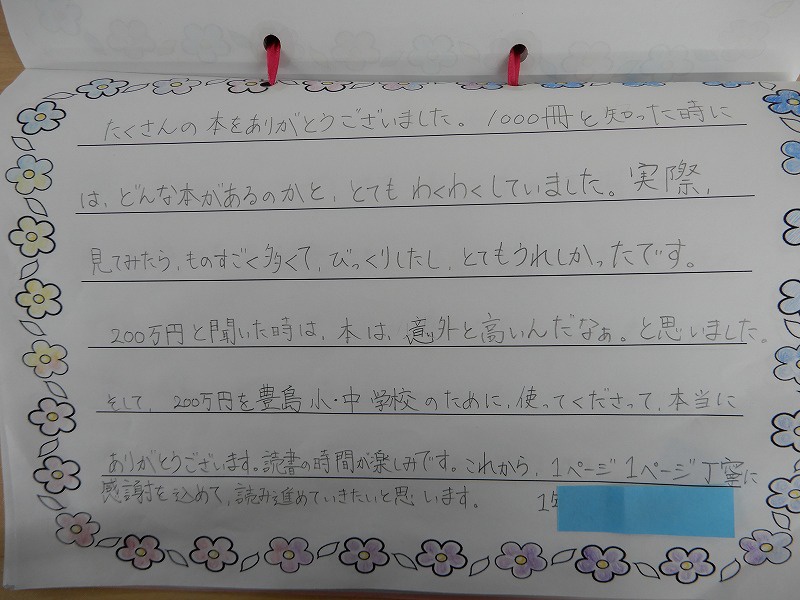 たくさんの本をありがとうございました。1000冊と知った時に
は、どんな本があるのかと、とてもわくわくしていました。実際、
見てみたら、ものすごく多くて、びっくりしたし、とてもうれしかったです。
200万円と聞いた時は、本は、意外と高いんだなぁ。と思いました。
そして、200万円を豊島小・中学校のために、使ってくださって、本当に
ありがとうございます。読書の時間が楽しみです。これから、1ページ1ページ丁寧に
感謝を込めて、読み進めていきたいと思います。 1